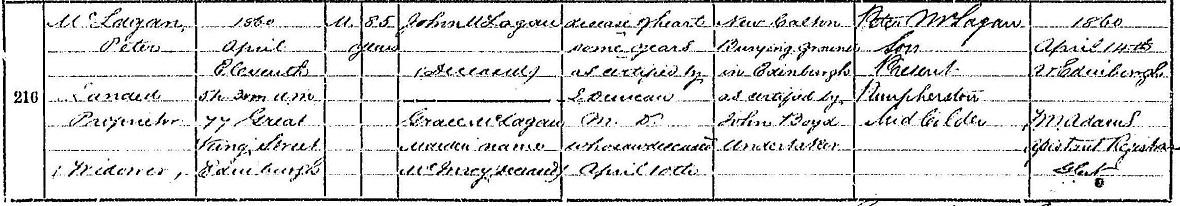 216
McLagan,
Peter
Landed
Proprietor
(Widower)
1860
April
Eleventh
5h 30m a.m.
77 Great
King Street
Edinburgh
M.
85
years
John McLagan
(Deceased)
Grace McLagan
Maiden name
(deceased)
disease of heart
some years
as certified by
J. Duncan
M. D.
who saw deceased
April 10th
New Calton
Burying ground
in Edinburgh
as certified by
John Boyd
Undertaker
Peter McLagan
Son
Present
Pumpherston
Mid Calder
1860
April 14th
at Edinburgh
Adams
Assistant Registrar